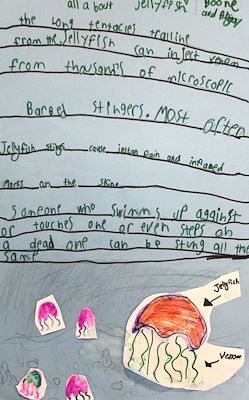 all about jellyfish Boone
and
the long tentacles trailing
from the Jellyfish can inject venom
from thousands of microscopic
Barbed stingers. Most often
Jellyfish stings cause instan pain and inflamed
Marks on the skin.
someone who swimms up against
or touches one or even steps on
a dead one can be stung all the
same
Jellyfish
Venom